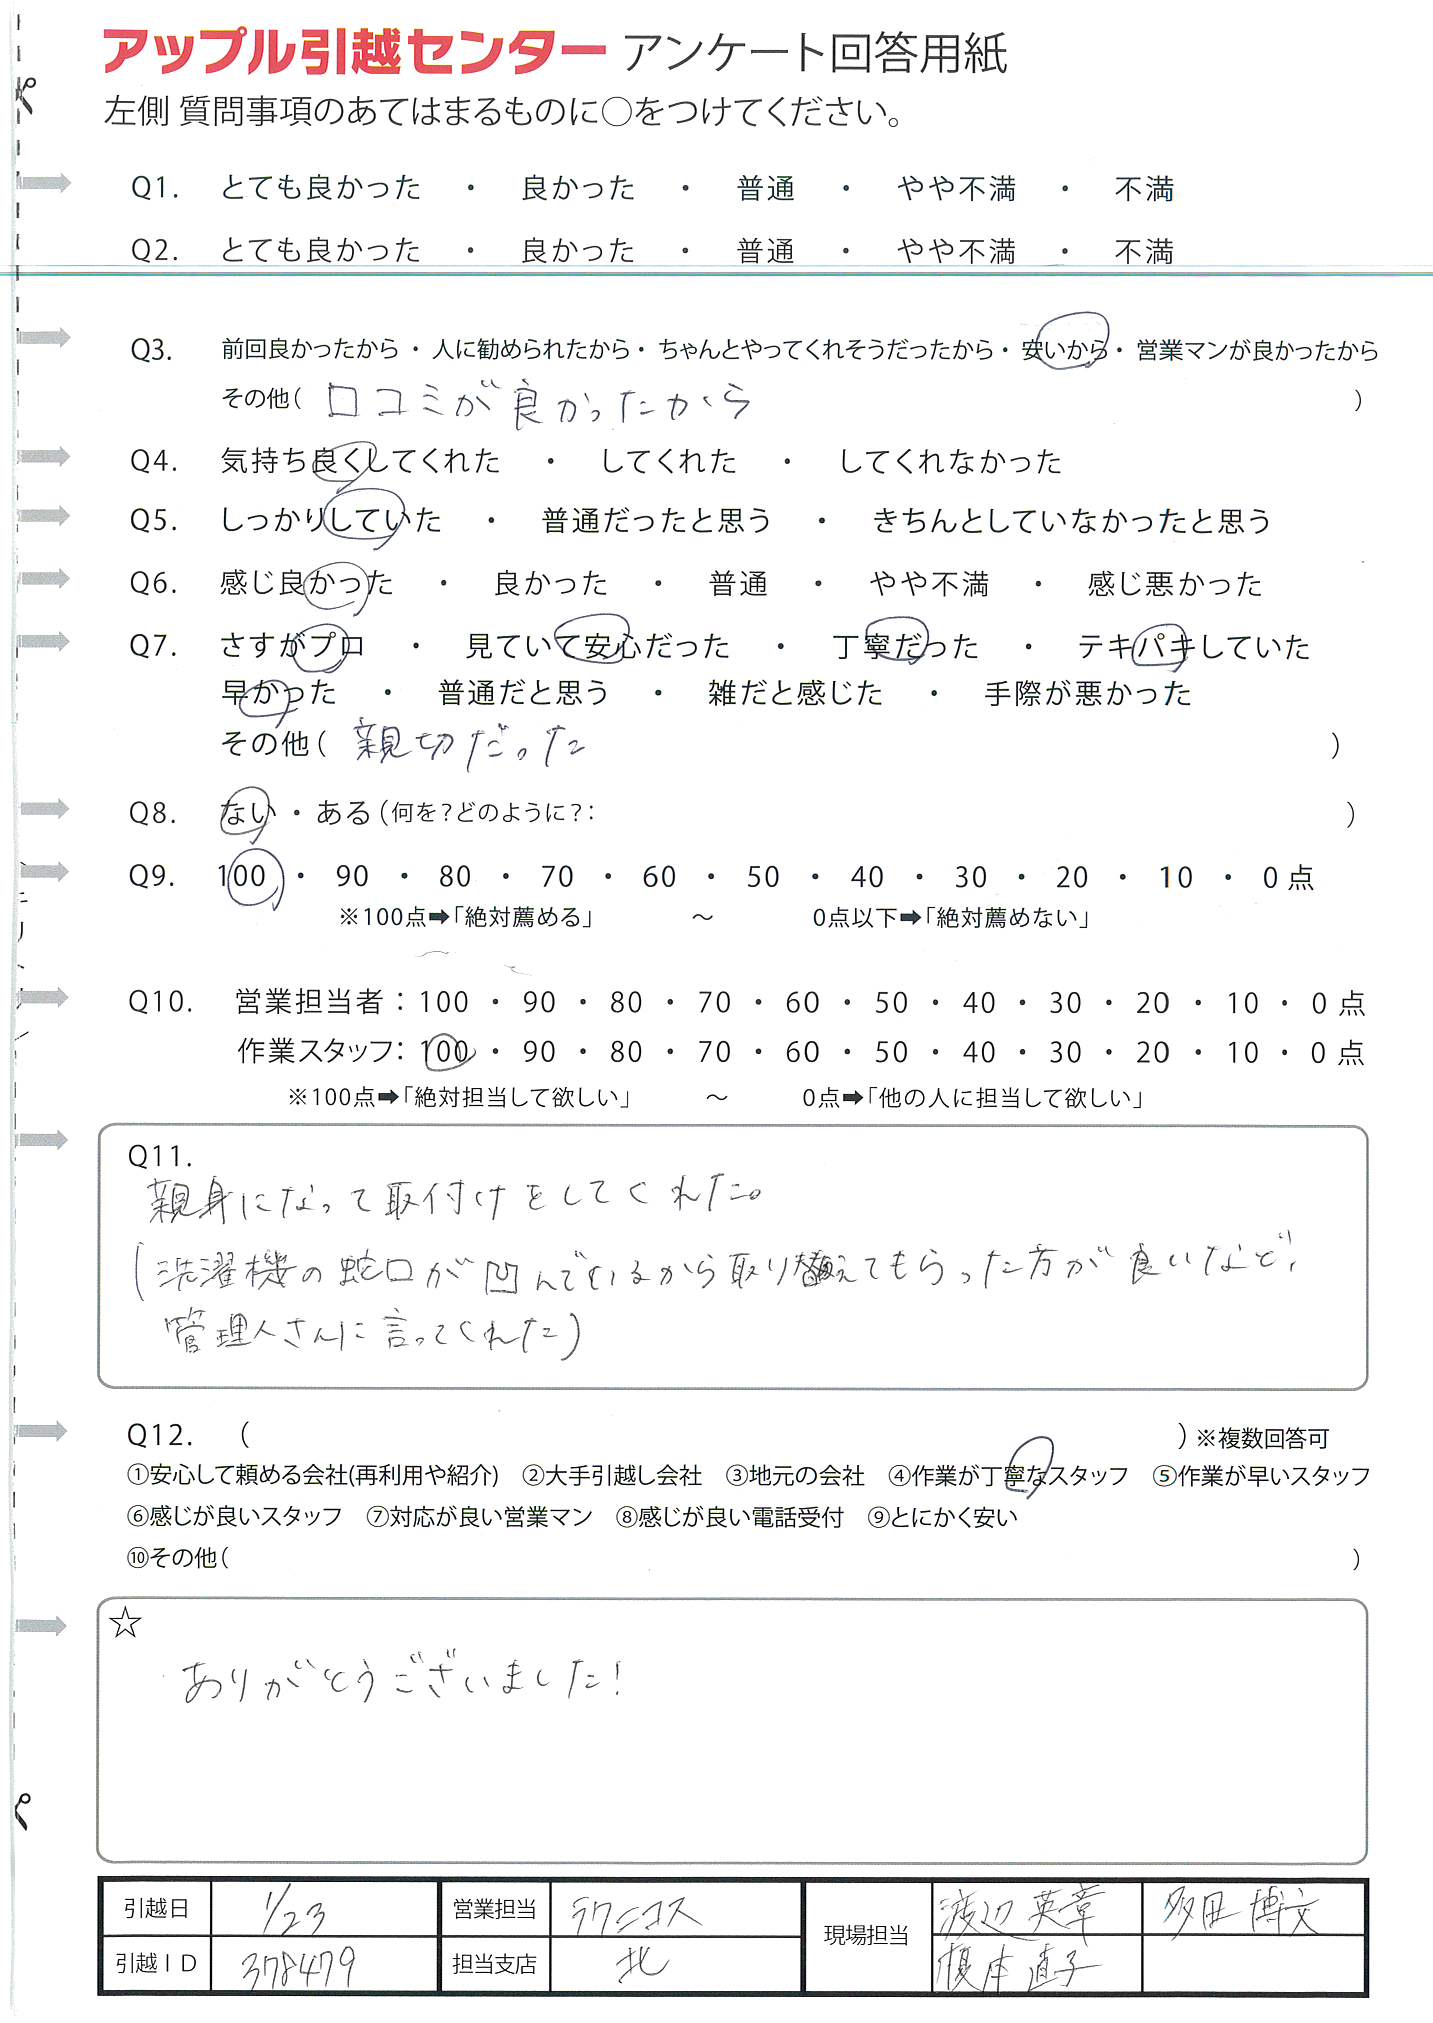 アップル引越センター アンケート回答用紙
左側 質問事項のあてはまるものに○をつけてください。
Q1. とても良かった ・ 良かった ・ 普通 ・ やや不満 ・ 不満
Q2. とても良かった ・ 良かった ・ 普通 ・ やや不満 ・ 不満
Q3. 前回良かったから・人に勧められたから・ちゃんとやってくれそうだったから・安いから・営業マンが良かったから
その他( 口コミが良かったから )
Q4. 気持ち良くしてくれた ・ してくれた ・ してくれなかった
Q5. しっかりしていた ・ 普通だったと思う ・ きちんとしていなかったと思う
Q6. 感じ良かった ・ 良かった ・ 普通 ・ やや不満 ・ 感じ悪かった
Q7. さすがプロ ・ 見ていて安心だった ・ 丁寧だった ・ テキパキしていた
早かった ・ 普通だと思う ・ 雑だと感じた ・ 手際が悪かった
その他( 親切だった )
Q8. ない・ある(何を?どのように?: )
Q9. 100 ・ 90 ・ 80 ・ 70 ・ 60 ・ 50 ・ 40 ・ 30 ・ 20 ・ 10 ・ 0点
※100点➡「絶対薦める」 ～ 0点以下➡「絶対薦めない」
Q10. 営業担当者:100 ・ 90 ・ 80 ・ 70 ・ 60 ・ 50 ・ 40 ・ 30 ・ 20 ・ 10 ・ 0点
作業スタッフ:100 ・ 90 ・ 80 ・ 70 ・ 60 ・ 50 ・ 40 ・ 30 ・ 20 ・ 10 ・ 0点
※100点➡「絶対担当して欲しい」 ～ 0点➡「他の人に担当して欲しい」
Q11.
親身になって取付けをしてくれた。
(洗濯機の蛇口が凹んでいるから取り替えてもらった方が良いなど、
管理人さんに言ってくれた)
Q12. ( )※複数回答可
①安心して頼める会社(再利用や紹介) ②大手引越し会社 ③地元の会社 ④作業が丁寧なスタッフ ⑤作業が早いスタッフ
⑥感じが良いスタッフ ⑦対応が良い営業マン ⑧感じが良い電話受付 ⑨とにかく安い
⑩その他( )
☆
ありがとうございました!
引越日 1/23 営業担当 ラクニコス 現場担当 渡辺 英章 多田 博文
引越ID 378479 担当支店 北 榎本 直子